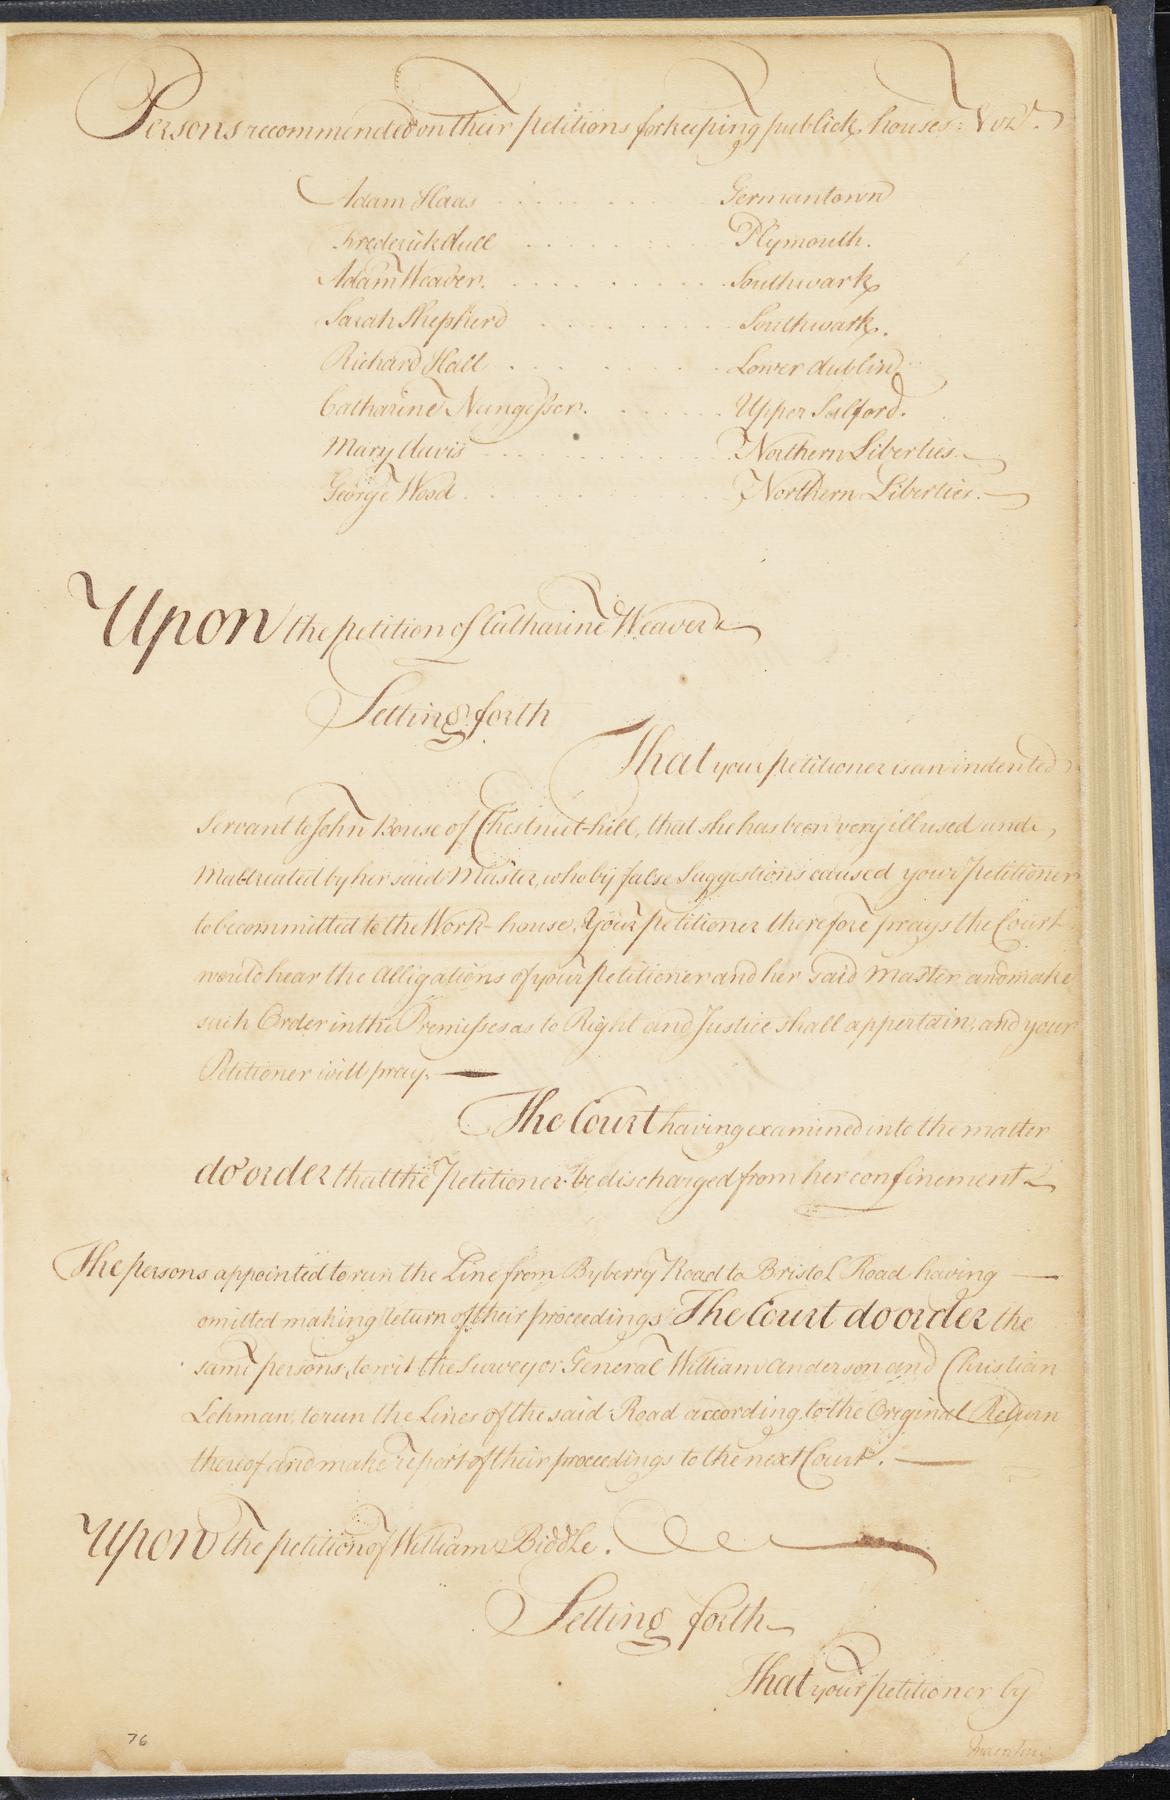 Persons recommended on their petitions for keeping publick houses: Vizt.
Adam Haas . . . . . . Germantown
Frederick dull . . . . . . Plymouth.
Adam Weaver. . . . . . . Southwark
Sarah Shepherd . . . . . . Southwark.
Richard Hall . . . . . . Lower dublin
Catharine Nungesser. . . . . . Upper Salford.
Mary davis . . . . . . Northern Liberties.
George Wood . . . . . . Northern Liberties.
Upon the petition of Catharine Weaver
Setting forth
That your petitioner is an indented
Servant to John Bouse of Chestnut-hill, that she has been very ill used and
Maltreated by her said Master, who by false Suggestions caused your petitioner
to be committed to the Work-house, Your petitioner therefore prays the Court
would hear the Alligations of your petitioner and her said Master and make
such Order in the Premisses as to Right and Justice shall appertain, and your
Petitioner will pray.
The Court having examined into the matter
do order that the Petitioner be discharged from her confinement
The persons appointed to run the Line from Byberry Road to Bristol Road having
omitted making return of their proceedings The Court do order the
same persons, to wit the Surveyor General William Anderson and Christian
Lehman, to run the Lines of the said Road according to the Original Return
thereof and make report of their proceedings to the next Court.
Upon the petition of William Biddle.
Setting forth
That your petitioner by
76